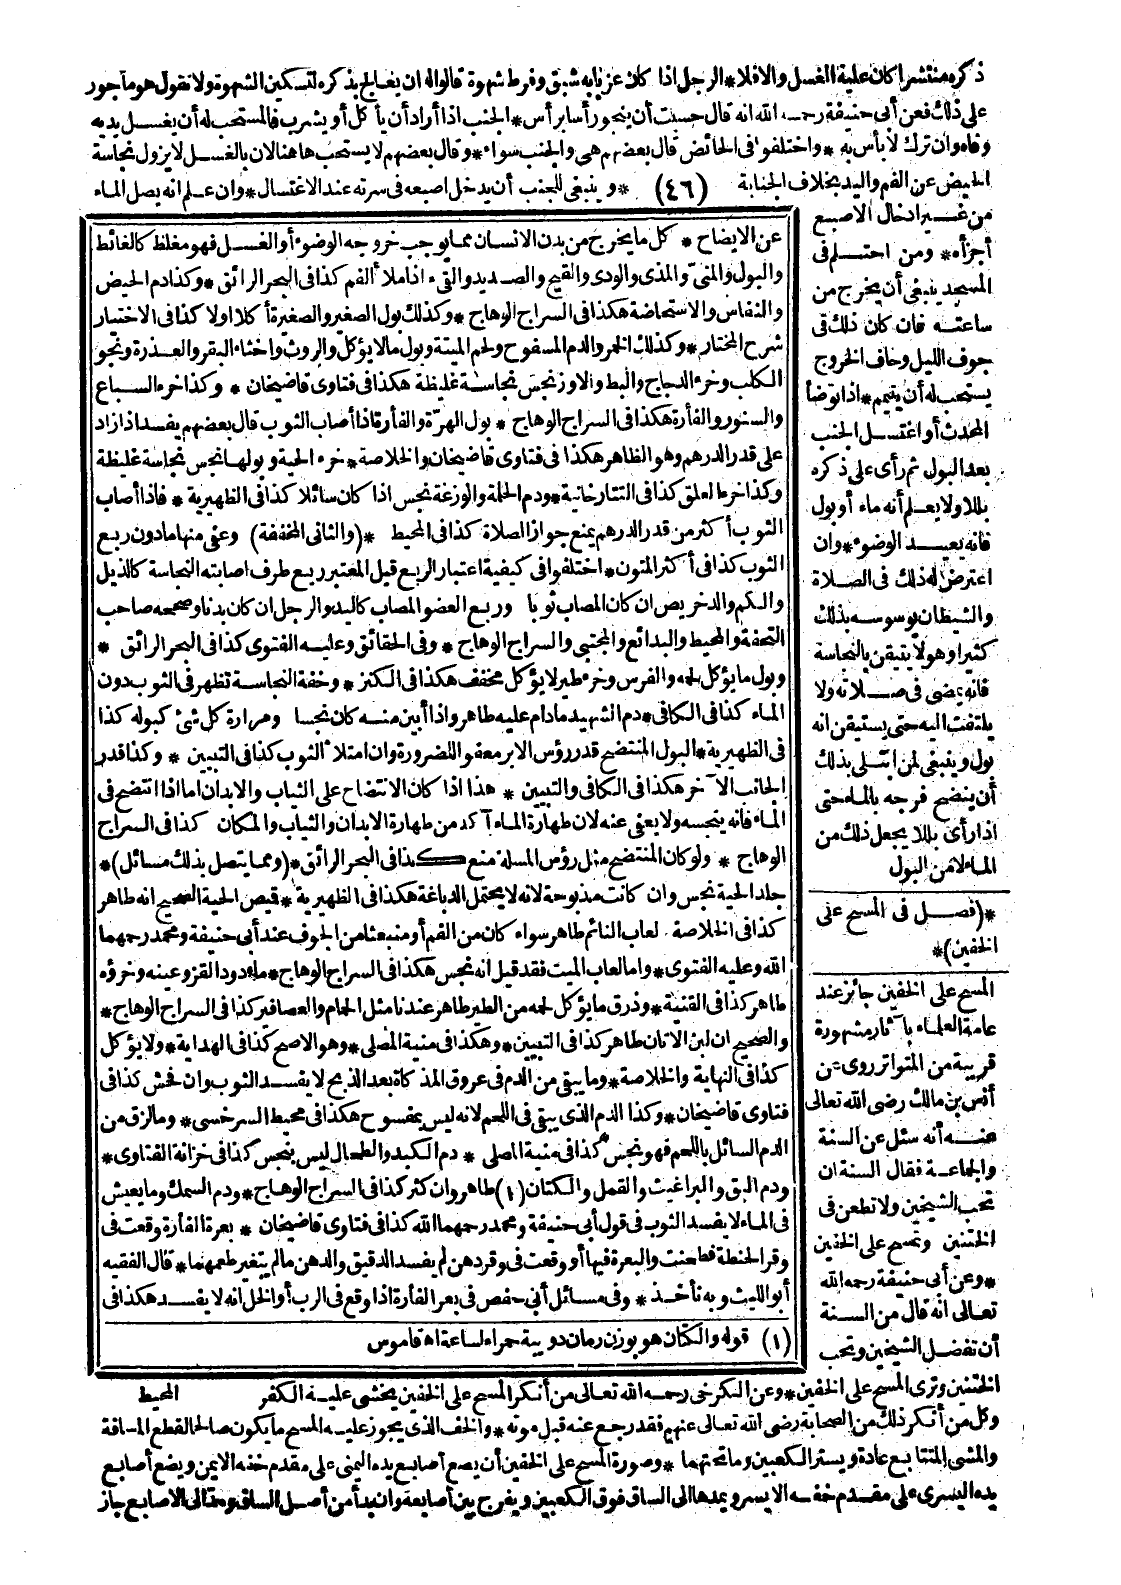 ذكره منتشرا كان عليه الغسل والا فلا * الرجل اذا كان عزبا به شبق وفرط شهوة قالوا له ان يعالج بذكره لتسكين الشهوة ولا نقول هو مأجور
على ذلك فعن أبى حنيفة رحمه الله انه قال حسبت أن ينجو رأسا برأس * الجنب اذا أراد أن يأكل أو يشرب فالمستحب له أن يغسل يديه
وفاه وان ترك لا بأس به * واختلفوا فى الحائض قال بعضهم هى والجنب سواء * وقال بعضهم لا يستحب ها هنا لان بالغسل لا يزول نجاسة
الحيض عن الفم واليد بخلاف الجنابة (٤٦) * وينبغى للجنب أن يدخل اصبعه فى سرته عند الاغتسال * وان علم انه يصل الماء
من غير ادخال الاصبع
أجزأه * ومن احتلم فى
المسجد ينبغى أن يخرج من
ساعته فان كان ذلك فى
جوف الليل وخاف الخروج
يستحب له أن يتيمم * اذا توضأ
المحدث أو اغتسل الجنب
بعد البول ثم رأى على ذكره
بللا ولا يعلم أنه ماء أو بول
فانه يعيد الوضوء * وان
اعترض له ذلك فى الصلاة
والشيطان يوسوسه بذلك
كثيرا وهو لا يتيقن بالنجاسة
فانه يمضى فى صلاته ولا
يلتفت اليه حتى يستيقن انه
بول وينبغى لمن ابتلى بذلك
أن ينضح فرجه بالماء حتى
اذا رأى بللا يجعل ذلك من
الماء لا من البول
*(فصل فى المسح على
الخفين)*
المسح على الخفين جائز عند
عامة العلماء بآثار مشهورة
قريبة من المتواتر روى عن
أنس بن مالك رضى الله تعالى
عنه أنه سئل عن السنة
والجماعة فقال السنة ان
تحب الشيخين ولا تطعن فى
الختنين وتمسح على الخفين
* وعن أبى حنيفة رحمه الله
تعالى انه قال من السنة
أن تفضل الشيخين وتحب
عن الايضاح * كل ما يخرج من بدن الانسان مما يوجب خروجه الوضوء أو الغسل فهو مغلظ كالغائط
والبول والمنىّ والمذى والودى والقيح والصديد والقىء اذا ملأ الفم كذا فى البحر الرائق * وكذا دم الحيض
والنفاس والاستحاضة هكذا فى السراج الوهاج * وكذلك بول الصغير والصغيرة أكلا اولا كذا فى الاختيار
شرح المختار * وكذلك الخمر والدم المسفوح ولحم الميتة وبول ما لا يؤكل والروث واخثاء البقر والعذرة ونجو
الكلب وخرء الدجاج والبط والاوز نجس نجاسة غليظة هكذا فى فتاوى قاضيخان * وكذا خرء السباع
والسنور والفأرة هكذا فى السراج الوهاج * بول الهرّة والفأرة اذا أصاب الثوب قال بعضهم يفسد اذا زاد
على قدر الدرهم وهو الظاهر هكذا فى فتاوى قاضيخان والخلاصة * خرء الحية وبولها نجس نجاسة غليظة
وكذا خرء العلق كذا فى التتارخانية * ودم الحلمة والوزغة نجس اذا كان سائلا كذا فى الظهيرية * فاذا أصاب
الثوب أكثر من قدر الدرهم يمنع جواز الصلاة كذا فى المحيط *(والثانى المخففة) وعفى منها ما دون ربع
الثوب كذا فى أكثر المتون * اختلفوا فى كيفية اعتبار الربع قيل المعتبر ربع طرف اصابته النجاسة كالذيل
والكم والدخريص ان كان المصاب ثوبا وربع العضو المصاب كاليد والرجل ان كان بدنا وصححه صاحب
التحفة والمحيط والبدائع والمجتبى والسراج الوهاج * وفى الحقائق وعليه الفتوى كذا فى البحر الرائق *
وبول ما يؤكل لحمه والفرس وخرء طير لا يؤكل مخفف هكذا فى الكنز * وخفة النجاسة تظهر فى الثوب دون
الماء كذا فى الكافى * دم الشهيد مادام عليه طاهر واذا أبين منه كان نجسا ومرارة كل شئ كبوله كذا
فى الظهيرية * البول المنتضح قدر رؤس الابر معفو للضرورة وان امتلأ الثوب كذا فى التبيين * وكذا قدر
الجانب الآخر هكذا فى الكافى والتبيين * هذا اذا كان الانتضاح على الثياب والابدان اما اذا انتضح فى
الماء فانه ينجسه ولا يعفى عنه لان طهارة الماء آكد من طهارة الابدان والثياب والمكان كذا فى السراج
الوهاج * ولو كان المنتضح مثل رؤس المسلة منع كذا فى البحر الرائق *(ومما يتصل بذلك مسائل)*
جلد الحية نجس وان كانت مذبوحة لانه لا يحتمل الدباغة هكذا فى الظهيرية * قيص الحية الصحيح انه طاهر
كذا فى الخلاصة لعاب النائم طاهر سواء كان من الفم أو منبعثا من الجوف عند أبى حنيفة ومحمد رحمهما
الله وعليه الفتوى * واما لعاب الميت فقد قيل انه نجس هكذا فى السراج الوهاج * ماء دود القز وعينه وخرؤه
طاهر كذا فى القنية * وذرق ما يؤكل لحمه من الطير طاهر عندنا مثل الحمام والعصافير كذا فى السراج الوهاج *
والصحيح ان لبن الاتان طاهر كذا فى التبيين * وهكذا فى منية المصلى * وهو الاصح كذا فى الهداية * ولا يؤكل
كذا فى النهاية والخلاصة * وما يبقى من الدم فى عروق المذكاة بعد الذبح لا يفسد الثوب وان فحش كذا فى
فتاوى قاضيخان * وكذا الدم الذى يبقى فى اللحم لانه ليس بمفسوح هكذا فى محيط السرخسى * وما لزق من
الدم السائل باللحم فهو نجس كذا فى منية المصلى * دم الكبد والطحال ليس بنجس كذا فى خزانة الفتاوى *
ودم البق والبراغيث والقمل والكتان (١) طاهر وان كثر كذا فى السراج الوهاج * ودم السمك وما يعيش
فى الماء لا يفسد الثوب فى قول أبى حنيفة ومحمد رحمهما الله كذا فى فتاوى قاضيخان * بعرة الفأرة وقعت فى
وقر الحنطة فطحنت والبعرة فيها أو وقعت فى وقر دهن لم يفسد الدقيق والدهن ما لم يتغير طعمهما * قال الفقيه
أبو الليث وبه نأخذ * وفى مسائل أبى حفص فى بعر الفأرة اذا وقع فى الرب أو الخل انه لا يفسد هكذا فى
(١) قوله والكتان هو بوزن رمان دويبة حمراء لساعة اه قاموس
الختنين وترى المسح على الخفين * وعن الكرخى رحمه الله تعالى من أنكر المسح على الخفين يخشى عليه الكفر المحيط
وكل من أنكر ذلك من الصحابة رضى الله تعالى عنهم فقد رجع عنه قبل موته * والخف الذى يجوز عليه المسح ما يكون صالحا لقطع المسافة
والمشى المتتابع عادة ويستر الكعبين وما تحتهما * وصورة المسح على الخفين أن يضع أصابع يده اليمنى على مقدم خفه الايمن ويضع أصابع
يده اليسرى على مقدم خفه الايسر ويمدها الى الساق فوق الكعبين ويفرج بين أصابعه وان بدأ من أصل الساق ومد الى الاصابع جاز